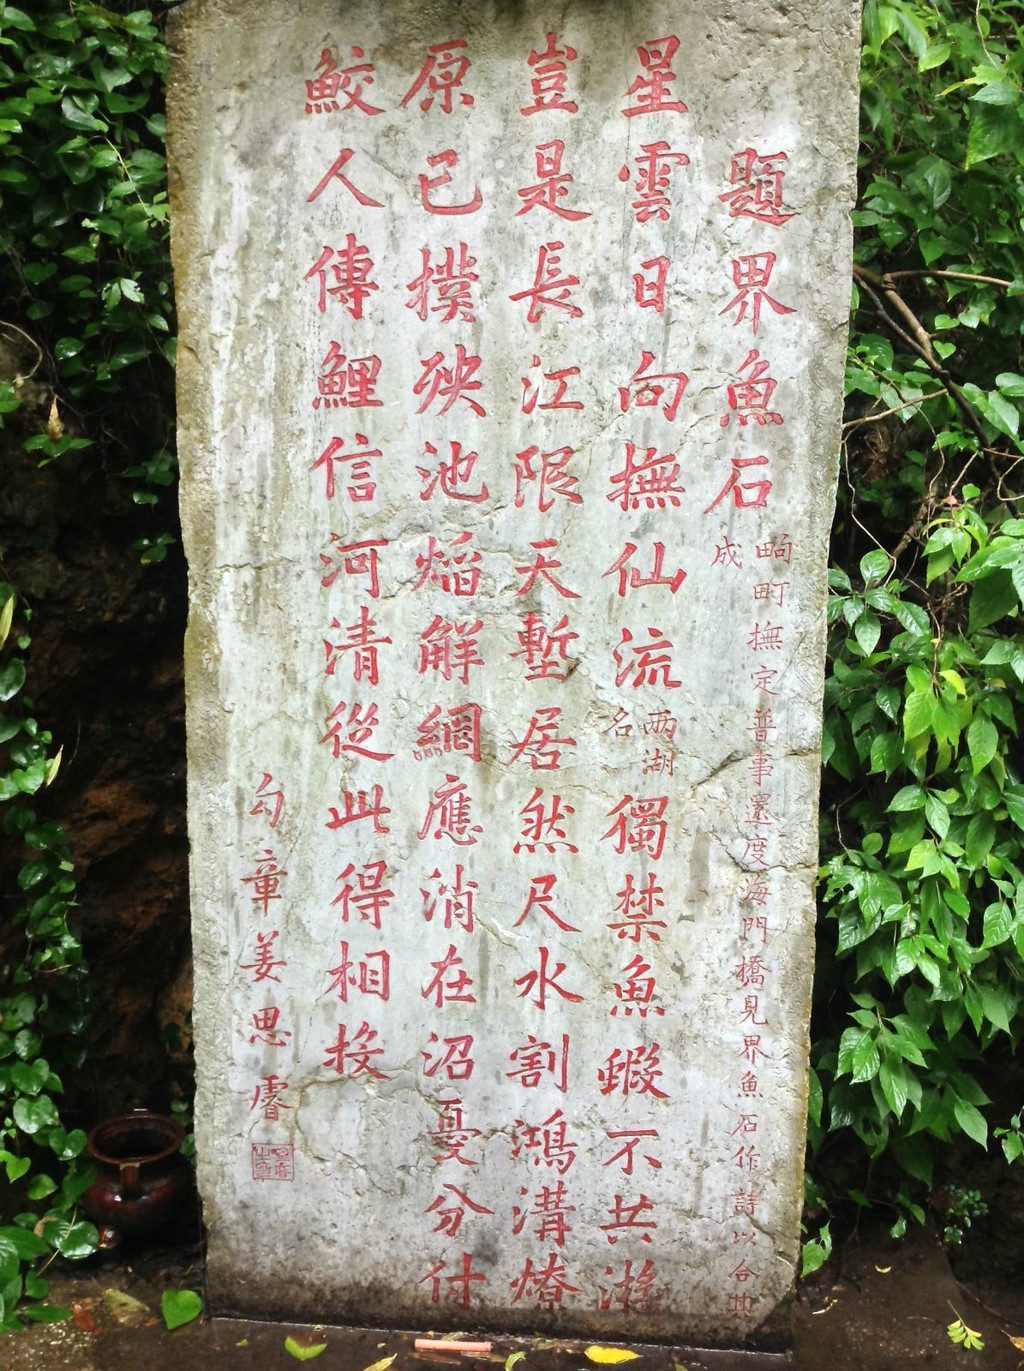 題界魚石
畇町撫定普事還度海門橋見界魚石作詩以合其
成
星雲日向撫仙流
两湖
名
獨禁魚蝦不共游
豈是長江限天塹居然尺水割鴻溝燎
原已撲殃池焰解網應消在沼憂分付
鮫人傳鯉信河清從此得相投
勾章姜思睿